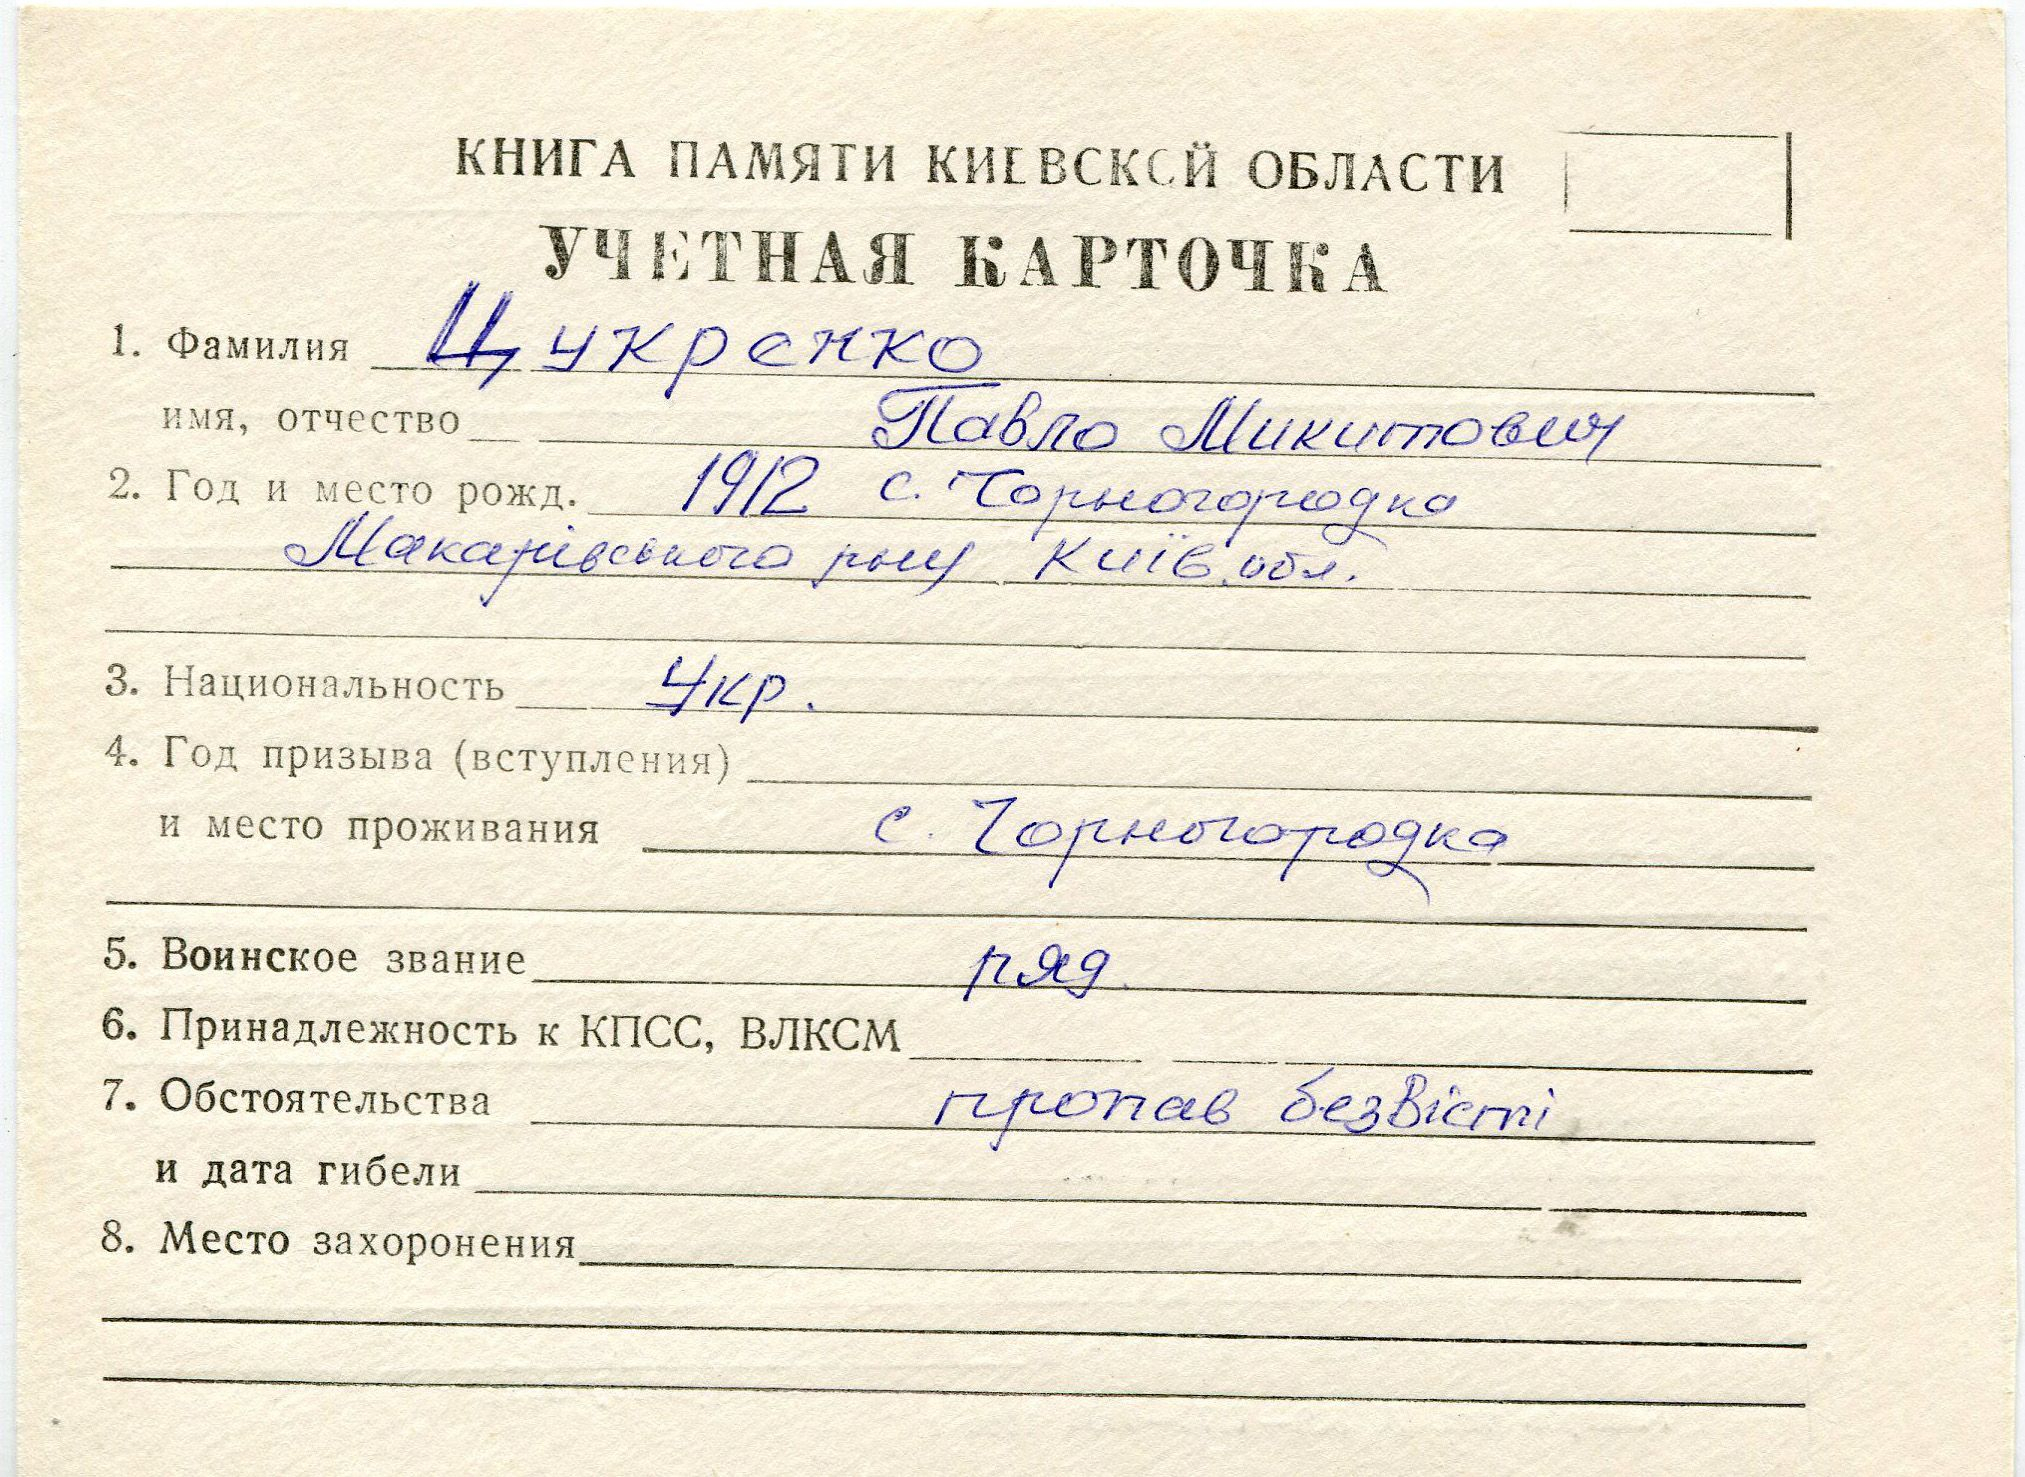 КНИГА ПАМЯТИ КИЕВСКОЙ ОБЛАСТИ
УЧЕТНАЯ КАРТОЧКА
1. Фамилия Цукренко
имя, отчество Павло Микитович
2. Год и место рожд. 1912 с. Чорногородка
Макарівського р-ну Київ. обл.
3. Национальность Укр.
4. Год призыва (вступления)
и место проживания с. Чорногородка
5. Воинское звание ряд.
6. Принадлежность к КПСС, ВЛКСМ
7. Обстоятельства пропав безвісті
и дата гибели
8. Место захоронения